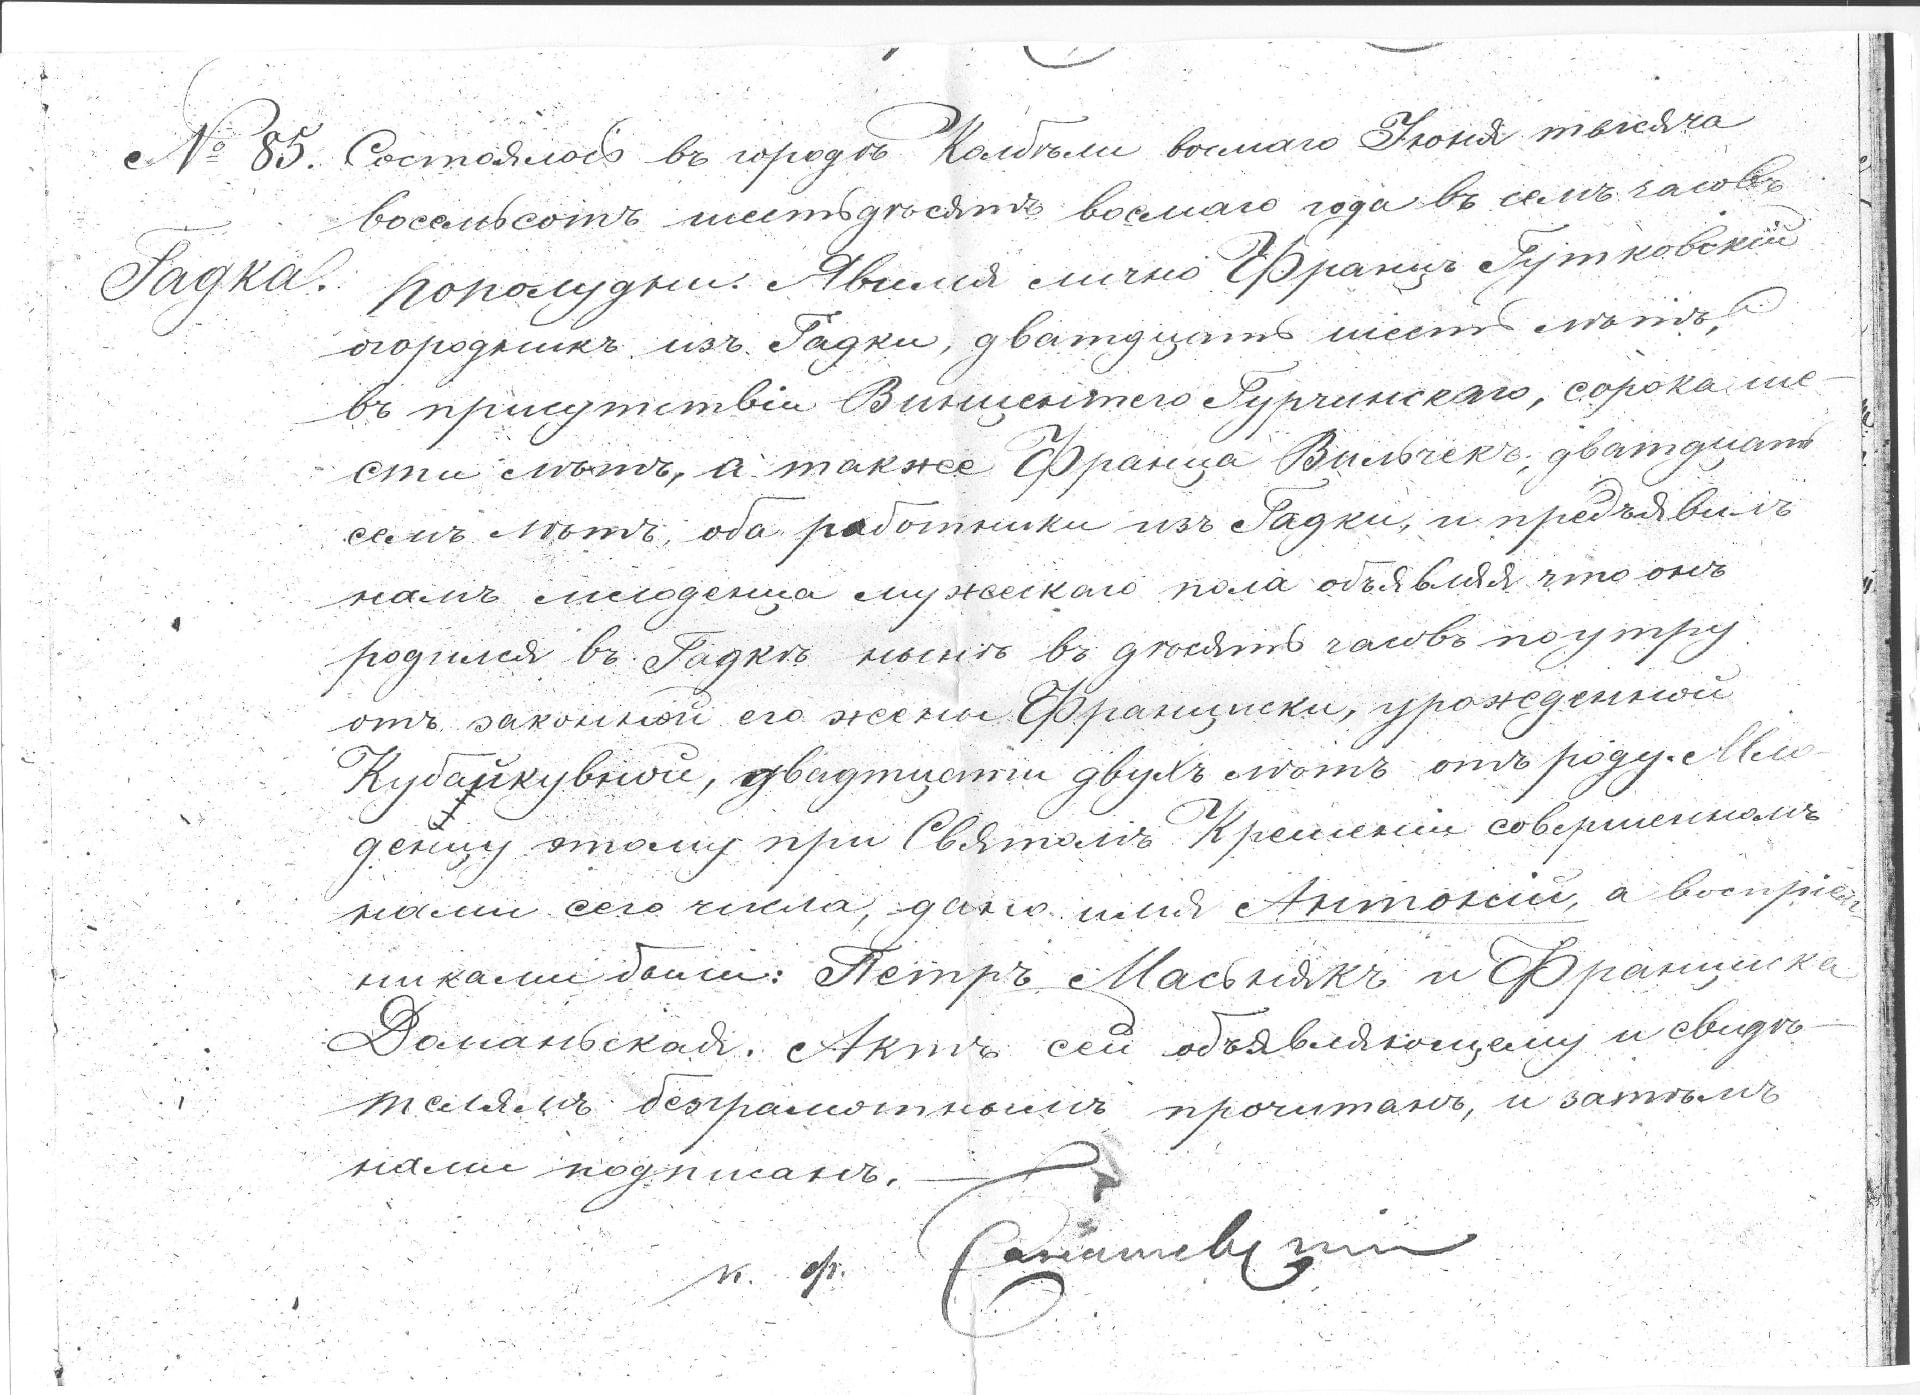 № 85. Состоялось въ городѣ Колбѣли восмаго Іюня тысяча
восемьсотъ шестьдѣсятъ восмаго года въ семъ часовъ
Гадка. пополудни. Явился лично Францъ Гутковскій
огородникъ изъ Гадки, дватдцать шесть лѣтъ,
въ присутствіи Винцентего Гурчинскаго, сорока ше-
сти лѣтъ, а также Франца Вильчекъ, дватдцать
семъ лѣтъ, оба работники изъ Гадки, и предъявилъ
намъ млоденца мужескаго пола объявляя что онъ
родился въ Гадкѣ нынѣ въ дѣсять часовъ поутру
отъ законной его жены Франциски, урожденной
Кубайкувной, двадтцати двухъ лѣтъ отъ роду. Мло-
денцу этому при Святомъ Крещеніи совершенномъ
нами сего числа, дано имя Антоній, а воспріем-
никами были: Петръ Масьнякъ и Франциска
Доманьская. Актъ сей объявляющему и свидѣ-
телямъ безграмотнымъ прочитанъ, и затѣмъ
нами подписанъ.